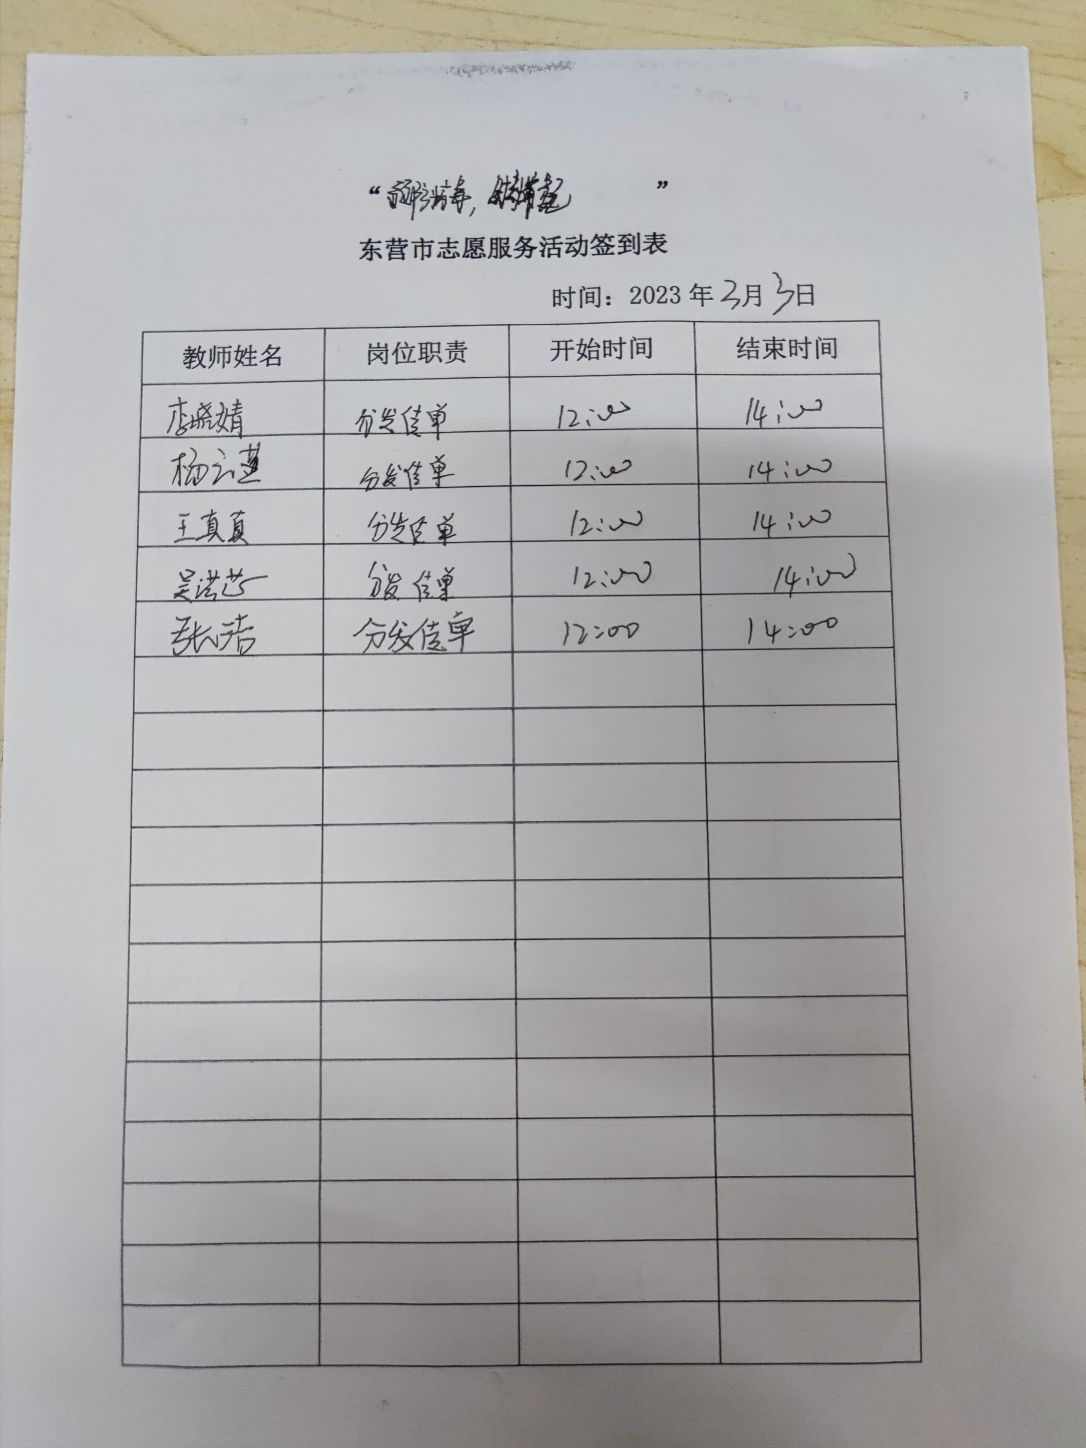 “ 病毒， ”
东营市志愿服务活动签到表
时间：2023年3月3日
教师姓名 岗位职责 开始时间 结束时间
李晓婧 分发传单 12:00 14:00
杨云 分发传单 12:00 14:00
王真真 分发传单 12:00 14:00
吴洪芯 分发传单 12:00 14:00
张洁 分发传单 12:00 14:00